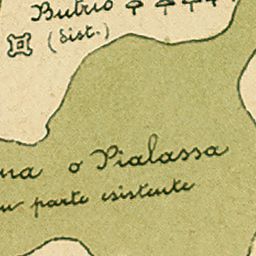 Butrio
(dist.)
na o Pialassa
parte esistente